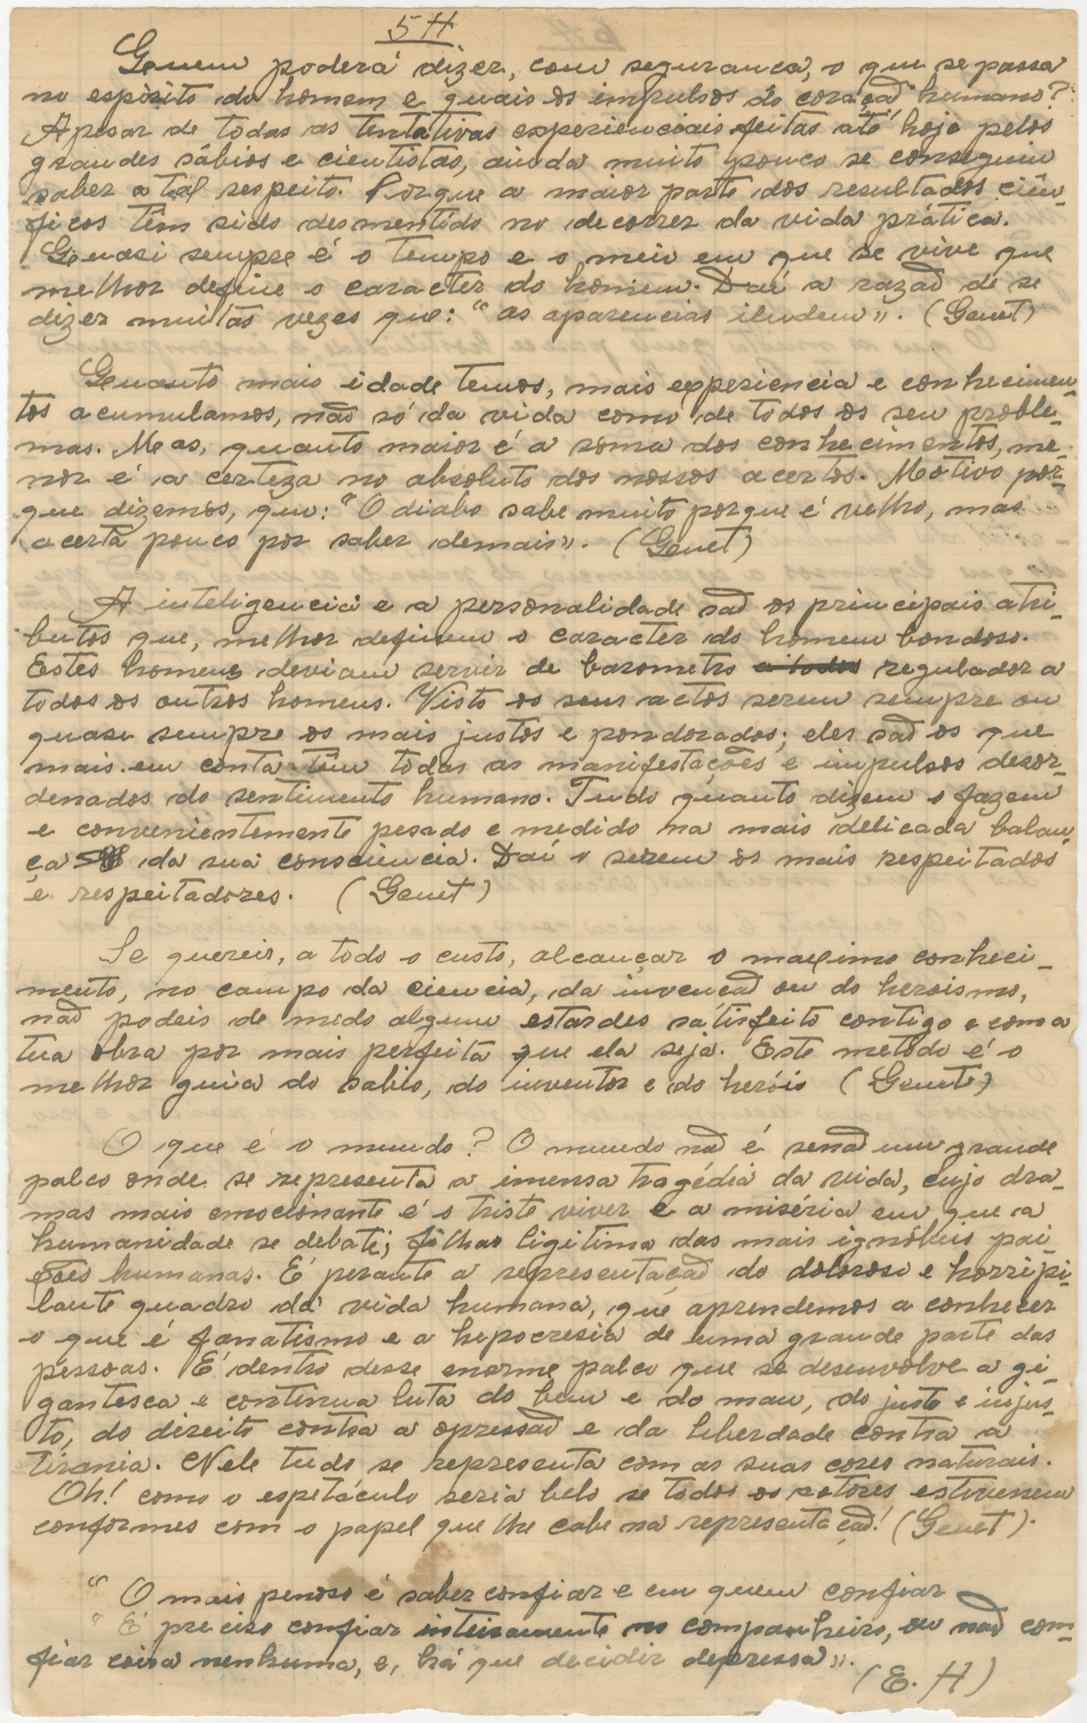 5 H
Quem poderá dizer, com seguranca, o que se passa
no espirito do homem e quais os impulsos do coraçaõ humano?
Apesar de todas as tentativas experienciais feitas até hoje pelos
grandes sábios e cientistas, ainda muito pouco se conseguiu
saber a tal respeito. Porque a maior parte dos resultados ciên-
ficos têm sido desmentido no decorrer da vida prática.
Quasi sempre é o tempo e o meio em que se vive que
melhor define o caracter do homem. Daí a razaõ de se
dizer muitas vezes que: "as aparencias iludem". (Genet)
Quanto mais idade temos, mais experiencia e conhecimen-
tos acumulamos, naõ só da vida como de todos os seu proble-
mas. Mas, quanto maior é a sôma dos conhecimentos, me-
nor é a certeza no absoluto dos nossos acertos. Motivo por-
que dizemos, que: "O diabo sabe muito porque é velho, mas
acerta pouco por saber demais". (Genet)
A inteligencia e a personalidade saõ os principais atri-
butos que, melhor definem o caracter do homem bondoso.
Estes homens deviam servir de barometro a todos regulador a
todos os outros homens. Visto os seus actos serem sempre ou
quase sempre os mais justos e ponderados; eles saõ os que
mais em conta têm todas as manifestações e impulsos desor-
denados do sentimento humano. Tudo quanto dizem e fazem
e convenientemente pesado e medido na mais delicada balan-
ça da sua consciencia. Daí o serem os mais respeitados
e respeitadores. (Genet)
Se quereis, a todo o custo, alcançar o maximo conheci-
mento, no campo da ciencia, da invençaõ ou do heroismo,
naõ podeis de modo algum estardes satisfeito contigo e com a
tua obra por mais perfeita que ela seja. Este metodo é o
melhor guia do sabio, do inventor e do heróis (Genet)
O que é o mundo? O mundo naõ é senaõ um grande
palco onde se representa a imensa tragédia da vida, cujo dra-
mas mais emocionante é o triste viver e a miséria em que a
humanidade se debate; filhas ligitima das mais ignóbeis pai-
xões humanas. É perante a representaçaõ do doloroso e horripi-
lante quadro da vida humana, que aprendemos a conhecer
o que é fanatismo e a hipocresia de uma grande parte das
pessoas. É dentro desse enorme palco que se desenvolve a gi-
gantesca e continua luta do bem e do mau, do justo e injus-
to, do direito contra a opressaõ e da liberdade contra a
tirania. Nele tudo se representa com as suas cores naturais.
Oh! como o espetáculo seria belo se todos os actores estivessem
conformes com o papel que lhe cabe na representaçaõ! (Genet).
"O mais penoso é saber confiar e em quem confiar
"É preciso confiar inteiramente no companheiro, ou naõ con-
fiar coisa nenhuma, e, há que decidir depressa".
(E. H)